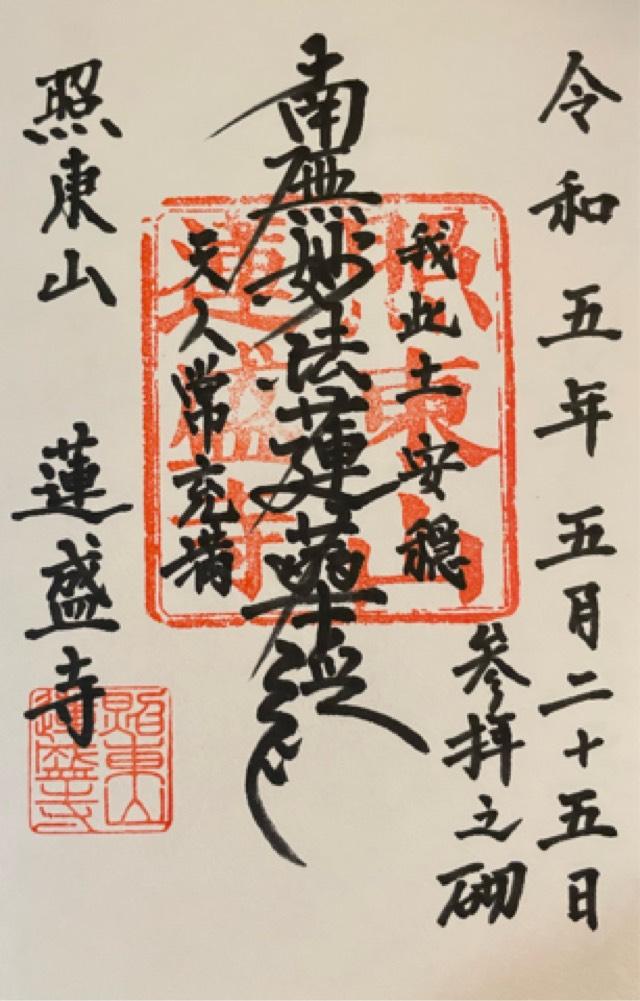 令和五年 五月二十五日
参拝之砌
我此土安穏
南無妙法蓮華経
天人常充満
照東山 蓮盛寺
照東山
蓮盛寺
照東山
蓮盛寺